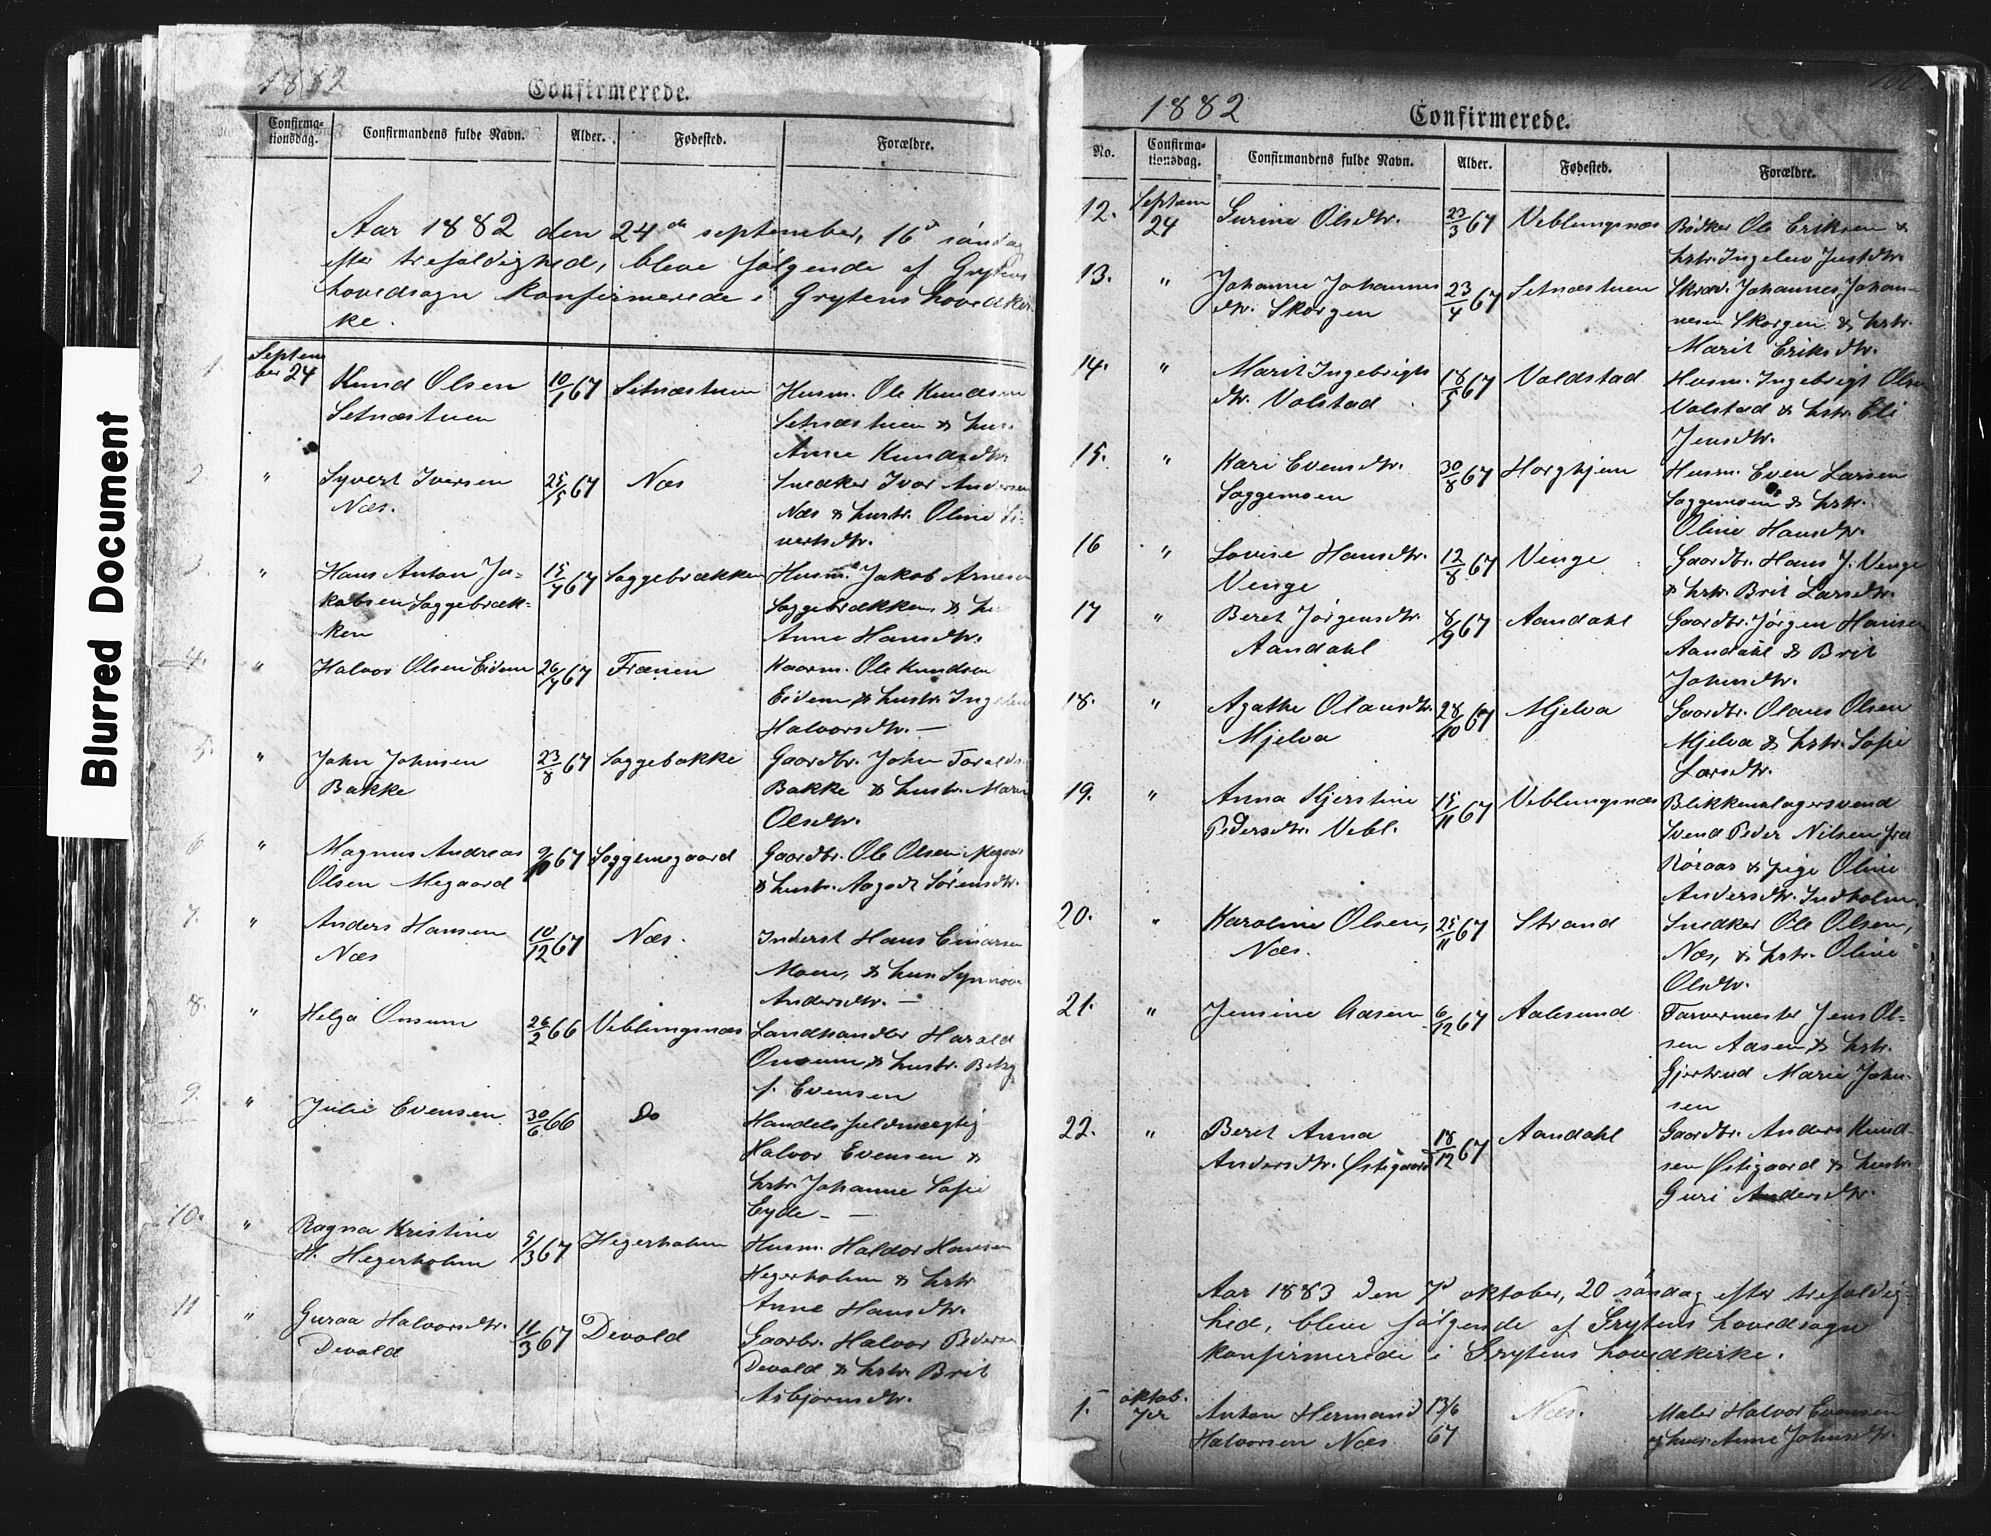 Blurred Document
1882
Confirmerede.
Confirma-
tionsdag.
Confirmandens fulde Navn.
Alder.
Fødested.
Forældre.
Aar 1882 den 24de september, 16d søndag
efter trefoldighed, bleve følgende af Grytens
hovedsogn konfirmerede i Grytens hovedkir-
ke.
1
Septem
ber 24
Knud Olsen
Setnæstuen
10/1 67
Setnæstuen
Husm. Ole Knudsen
Setnæstuen & hus.
Anne Knudsdtr.
2
"
Syvert Iversen
Næs.
25/5 67
Næs
Snedker Ivar Andersen
Næs & hustr. Oline Si-
vertsdtr.
3
"
Hans Anton Ja-
kobsen Soggebræk-
ken
15/7 67
Soggebrækken
Husm. Jakob Arnesen
Soggebrækken & hu
Anne Hansdtr.
4.
"
Halvor Olsen Eidem
26/7 67
Frænen
Kaarm. Ole Knudsen
Eidem & hustr. Ingeleu
Halvorsdtr. —
5.
"
John Johnsen
Bakke
23/8 67
Soggebakke
Gaardbr. John Toralds.
Bakke & hustr. Maren
Olsdtr.
6
"
Magnus Andreas
Olsen Megaard
9/10 67
Soggemegaard
Gaardbr. Ole Olsen Megaar
& hustr. Aagodt Sørensdtr.
7.
"
Anders Hansen
Næs
10/12 67
Næs.
Inderst Hans Einarsen
Moen, & hus Synnøve
Andersdtr. —
8.
"
Helga Onsum
26/2 66
Veblungsnæs
Landhandler Harald
Onsum, & hustr. Betzy
f. Evensen
9.
"
Julie Evensen
30/6 66
Do
Handelsfuldmægtig
Halvor Evensen &
hstr. Johanne Sofie
Eyde — —
10.
"
Ragna Kristine
H. Hegerholm
5/3 67
Hegerholm
Husm. Haldor Hansen
Hegerholm & hstr
Anne Hansdtr.
11
"
Guraa Halvorsdtr.
Devold
11/3 67
Devold
Gaarbr. Halvor Pedersen
Devold & hstr. Brit
Asbjørnsdtr.
1882
Confirmerede.
No.
Confirma-
tionsdag.
Confirmandens fulde Navn.
Alder.
Fødested.
Forældre.
12.
Septem
24
Gurine Olsdtr.
23/3 67
Veblungsnæs
Bødker Ole Eriksen &
hstr. Ingeleu Justdtr.
13.
"
Johanne Johannes
dtr. Skorgen
23/4 67
Setnæstuen
Skræd. Johannes Johan-
nesen Skorgen & hstr.
Marit Eriksdtr.
14.
"
Marit Ingebrigts
dtr. Volstad
18/5 67
Voldstad
Husm. Ingebrigt Olsen
Volstad & hstr. Eli
Jensdtr.
15.
"
Kari Evensdtr.
Soggemoen
30/8 67
Horghjem
Husm. Even Larsen
Soggemoen & hstr.
Oline Hansdtr.
16
"
Lovise Hansdtr.
Venge
12/8 67
Venge
Gaardbr. Hans J. Venge
& hstr. Brit Larsdtr.
17
"
Beret Jørgensdtr.
Aandahl
8/9 67
Aandahl
Gaardbr. Jørgen Hansen
Aandahl & Brit
Johnsdtr.
18.
"
Agathe Olausdtr.
Mjelva
28/10 67
Mjelva
Gaardbr. Olaus Olsen
Mjelva & hstr. Sofie
Larsdtr.
19.
"
Anna Kjerstine
Pedersdtr. Vebl.
15/11 67
Veblungsnæs
Blikkenslagersvend
Svend Peder Nilsen fra
Røraas & pige Oline
Andersdtr. Indholm.
20.
"
Karoline Olsen,
Næs.
25/11 67
Strand
Snedker Ole Olsen,
Næs, & hstr. Oline
Olsdtr.
21.
"
Jensine Aasen
6/12 67
Aalesund
Farvermester Jens Ol-
sen Aasen & hstr.
Gjertrud Marie John-
sen
22.
"
Beret Anna
Andersdtr. Østigaard
18/12 67
Aandahl
Gaardbr. Anders Knud-
sen Østigaard & hustr.
Guri Andersdtr.
Aar 1883 den 7d oktober, 20 søndag efter trefoldig-
hed, bleve følgende af Grytens hovedsogn
konfirmerede i Grytens hovedkirke.
1.
oktob.
7de
Anton Hermand
Halvorsen Næs
13/6
67
Næs.
Maler Halvor Evensen
og hus. Anne Johnsdtr.